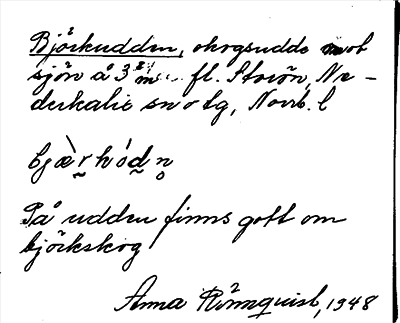 Björkudden, skogsudde mot
sjön å 3 fl. Storön, Ne-
derkalix sn o tg, Norrb. l
bjæ̀rkódn̥
På udden finns gott om
björkskog
Anna Rönnquist, 1948